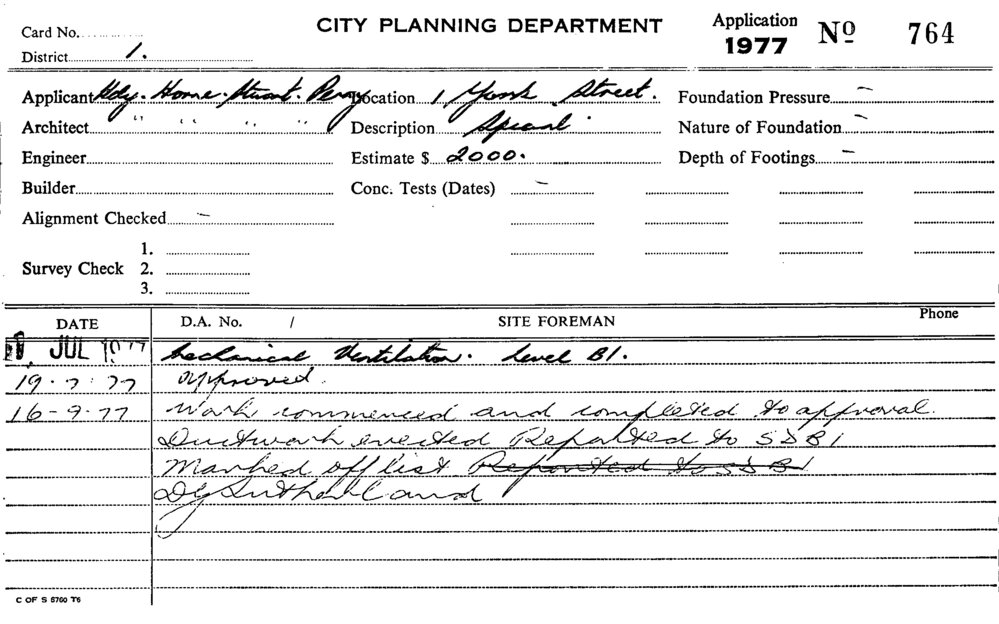 Card No.
CITY PLANNING DEPARTMENT
Application 1977 Nº 764
District 1.
Applicant Hdy. Home. Stuart. Perry Location 1 York Street. Foundation Pressure –
Architect " " " " Description Special Nature of Foundation –
Engineer Estimate $ 2000. Depth of Footings –
Builder Conc. Tests (Dates) –
Alignment Checked –
1.
Survey Check 2.
3.
DATE D.A. No. / SITE FOREMAN Phone
JUL 1977 Mechanical Ventilation. Level B1.
19.7.77 approved.
16-9-77 Work commenced and completed to approval.
Ductwork erected Reported to SDB1
Marked off list Reported to SDB1
DJ Sutherland
C OF S 6760 T6